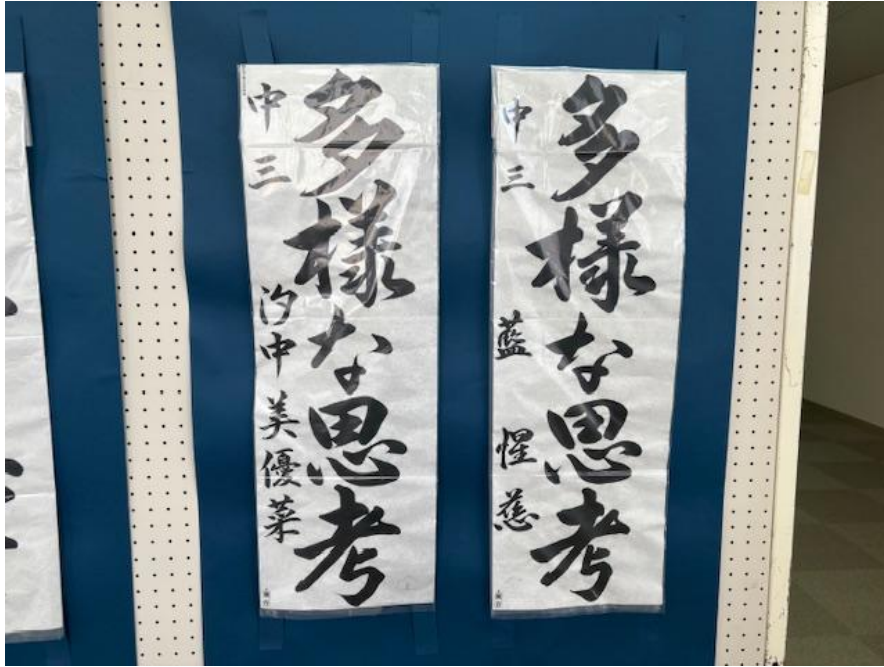 多様な思考
中三 藍 惺慈
多様な思考
中三 汐中 美優菜